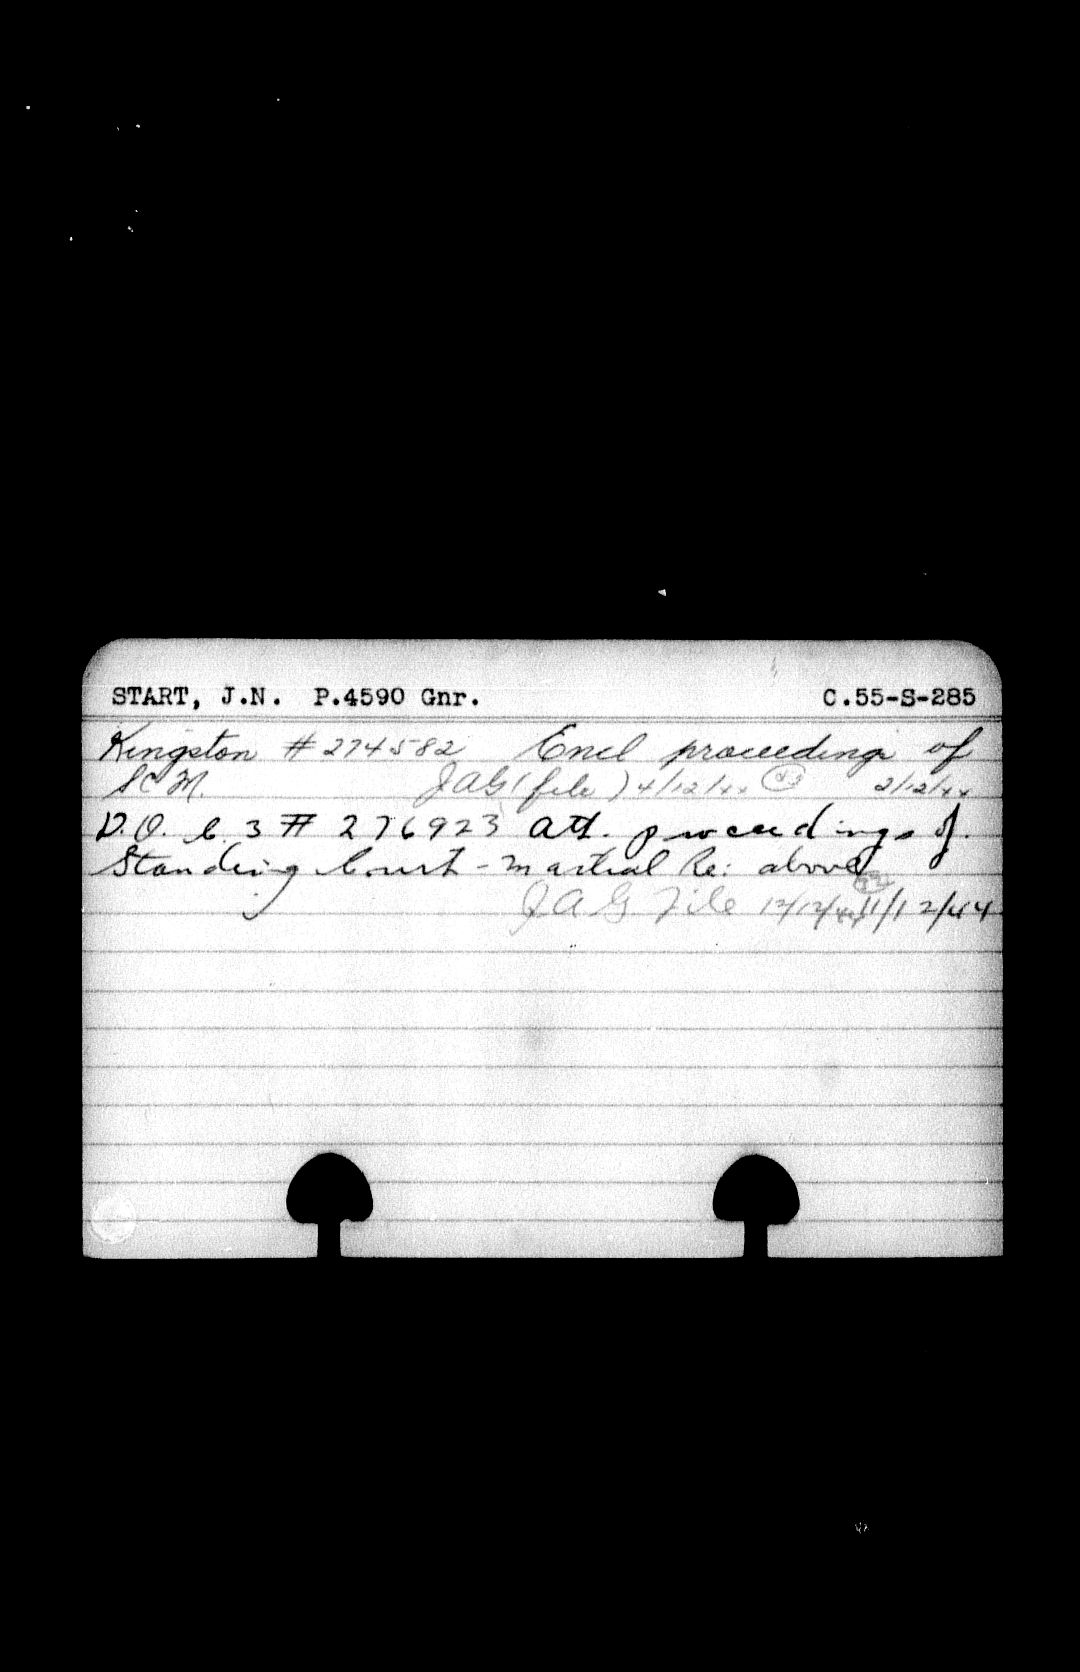 START, J.N. P.4590 Gnr. C.55-S-285
Kingston # 274582 Encl proceedings of
SCM. JAG (file) 4/12/44 2/12/44
D.O.C. 3 # 276923 Att. proceedings of
Standing Court-martial Re: above
JAG File 12/12/44 11/12/44